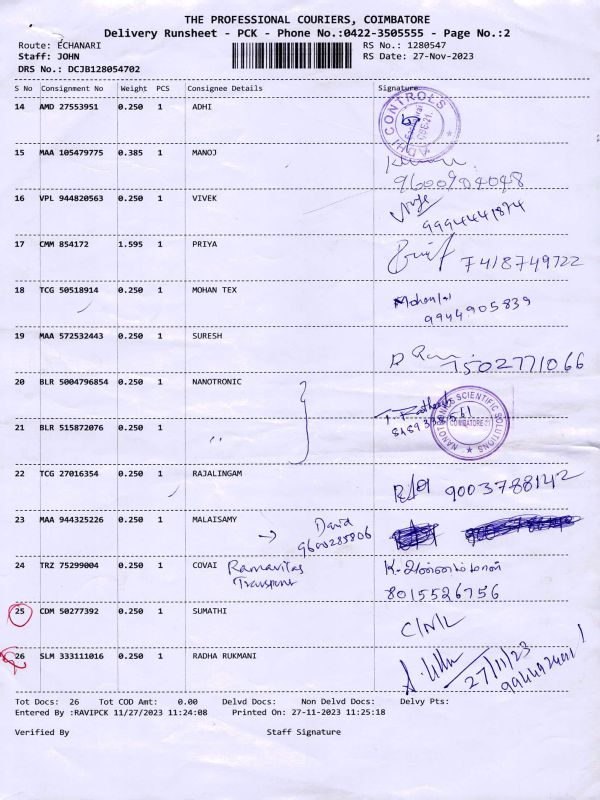 THE PROFESSIONAL COURIERS, COIMBATORE
Delivery Runsheet - PCK - Phone No.:0422-3505555 - Page No.:2
Route: ECHANARI RS No.: 1280547
Staff: JOHN RS Date: 27-Nov-2023
DRS No.: DCJB128054702
S No Consignment No Weight PCS Consignee Details Signature
14 AMD 27553951 0.250 1 ADHI
ADHI CONTROLS
15 MAA 105479775 0.385 1 MANOJ
9600904048
16 VPL 944820563 0.250 1 VIVEK
9994441874
17 CMM 854172 1.595 1 PRIYA 7418749722
18 TCG 50518914 0.250 1 MOHAN TEX
9944905839
19 MAA 572532443 0.250 1 SURESH
7502771066
20 BLR 5004796854 0.250 1 NANOTRONIC
NANOTRONICS SCIENTIFIC SOLUTIONS
COIMBATORE-21
21 BLR 515872076 0.250 1 "
22 TCG 27016354 0.250 1 RAJALINGAM 9003788142
23 MAA 944325226 0.250 1 MALAISAMY → David
9600285806
24 TRZ 75299004 0.250 1 COVAI Ramavilas
Transport
8015526756
25 CDM 50277392 0.250 1 SUMATHI
C/N/L
26 SLM 333111016 0.250 1 RADHA RUKMANI
27/11/23
Tot Docs: 26 Tot COD Amt: 0.00 Delvd Docs: Non Delvd Docs: Delvy Pts:
Entered By :RAVIPCK 11/27/2023 11:24:08 Printed On: 27-11-2023 11:25:18
Verified By Staff Signature